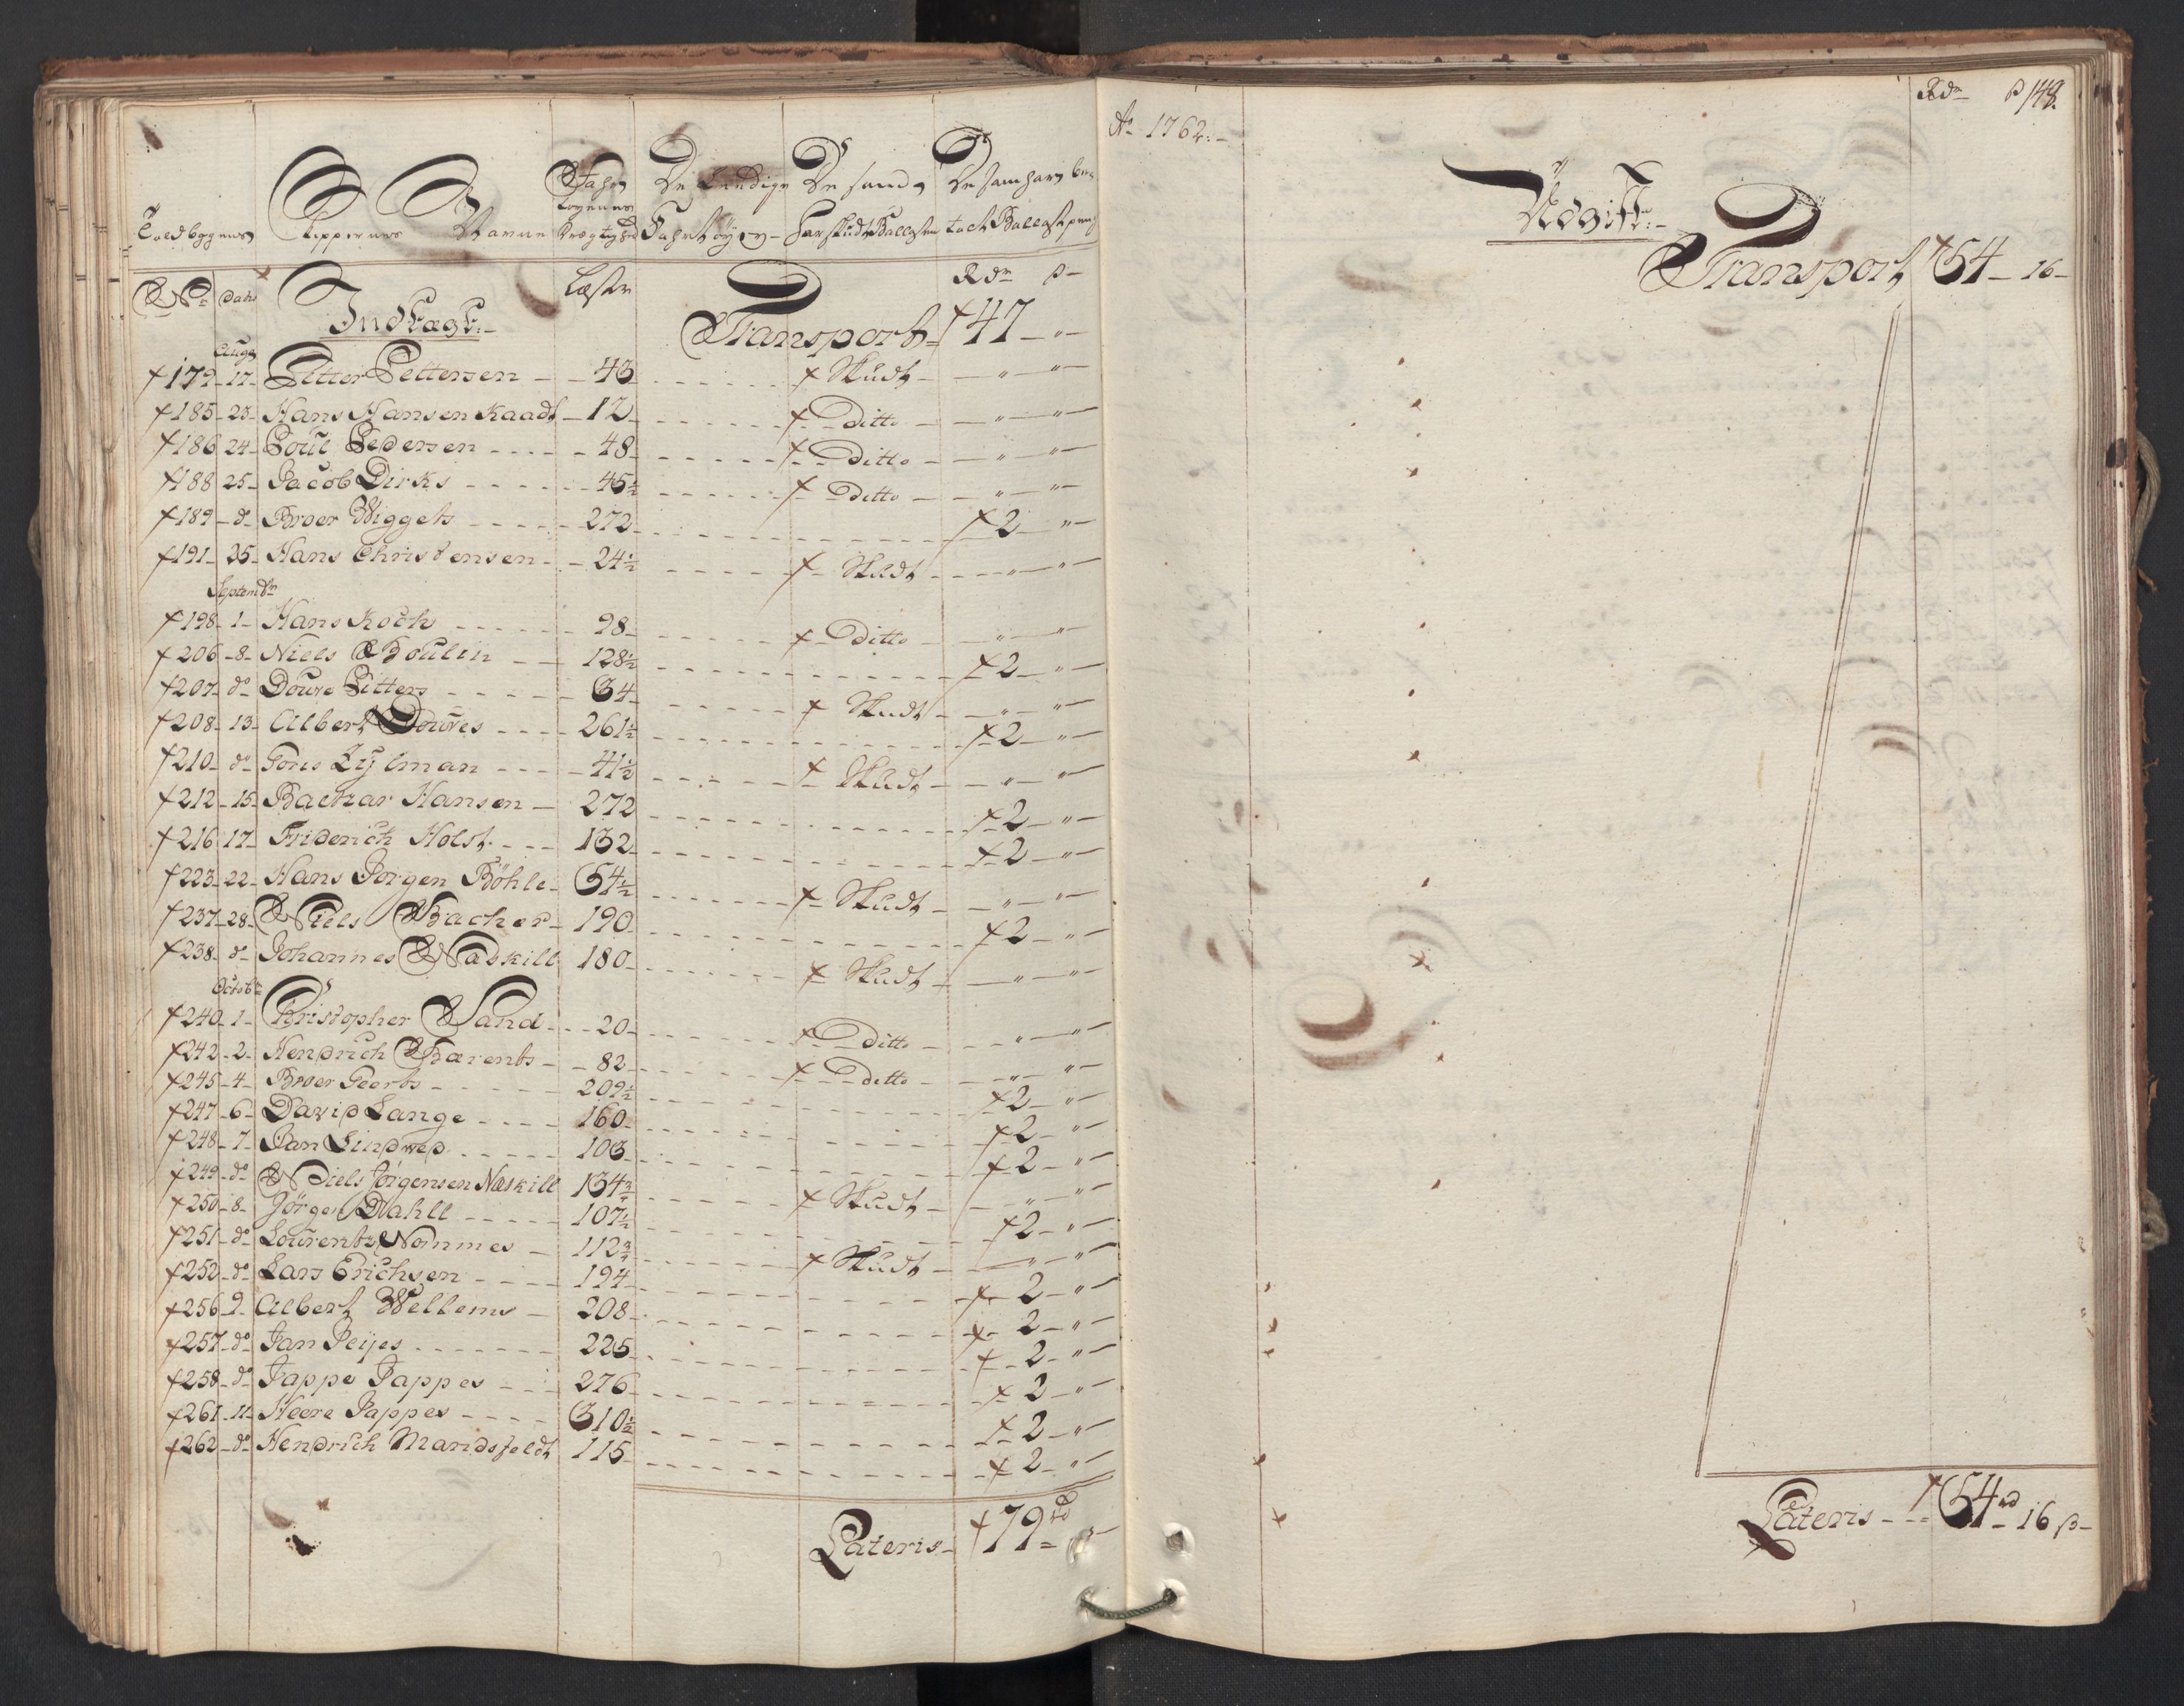 Toldbogens
Skippernes Navne
Fahr
tøyenes
Drægtighed
De Ledige
Fahrtøyer
De som
har skudt Ballasten
De som har be
talt Ballast peng
No Dato
Indtægt:
Læster
Rdr ß
Transport 47 - "
Aug
179 17 Pitter Pettersen 43 Skudt " "
185 23 Hans Hansen Kaadt 12 Ditto " "
186 24 Poul Pedersen 48 Ditto " "
188 25 Jacob Dirks 45½ Ditto " "
189 do Broer Wiggets 272 2 "
191 25 Hans Christensen 24½ Skudt " "
Septembr
198 1 Hans Koch 98 Ditto " "
206 8 Niels Boulin 128½ 2 "
207 do Douve Pitters 34 Skudt " "
208 13 Albert Douves 261½ 2 "
210 do Goris Lijlman 41½ Skudt " "
212 15 Baltzar Hansen 272 2 "
216 17 Friderich Holst 132 2 "
223 22 Hans Jørgen Böhle 54½ Skudt " "
237 28 Niels Bacher 190 2 "
238 do Johannes Næskill 180 Skudt " "
Octobr
240 1 Christopher Sand 20 Ditto " "
242 2 Hendrich Bærents 82 Ditto " "
245 4 Broer Geerts 209½ 2 "
247 6 David Lange 160 2 "
248 7 Jan Lindved 103 2 "
249 do Niels Jørgensen Næskill 134¾ Skudt " "
250 8 Jörgen Dahll 107½ 2 "
251 do Lourents Nommes 112¾ Skudt " "
252 do Lars Erichsen 194 2 "
256 9 Albert Wellems 208 2 "
257 do Jan Peijes 225 2 "
258 do Jappe Jappes 276 2 "
261 11 Heere Jappes 310½ 2 "
262 do Hendrich Mandsfeldt 115 2 "
Lateris 79 rd
Ao 1762:
Rdr ß 148.
Udgift:
Transport 54 - 16 -
Lateris 54 rd 16 ß